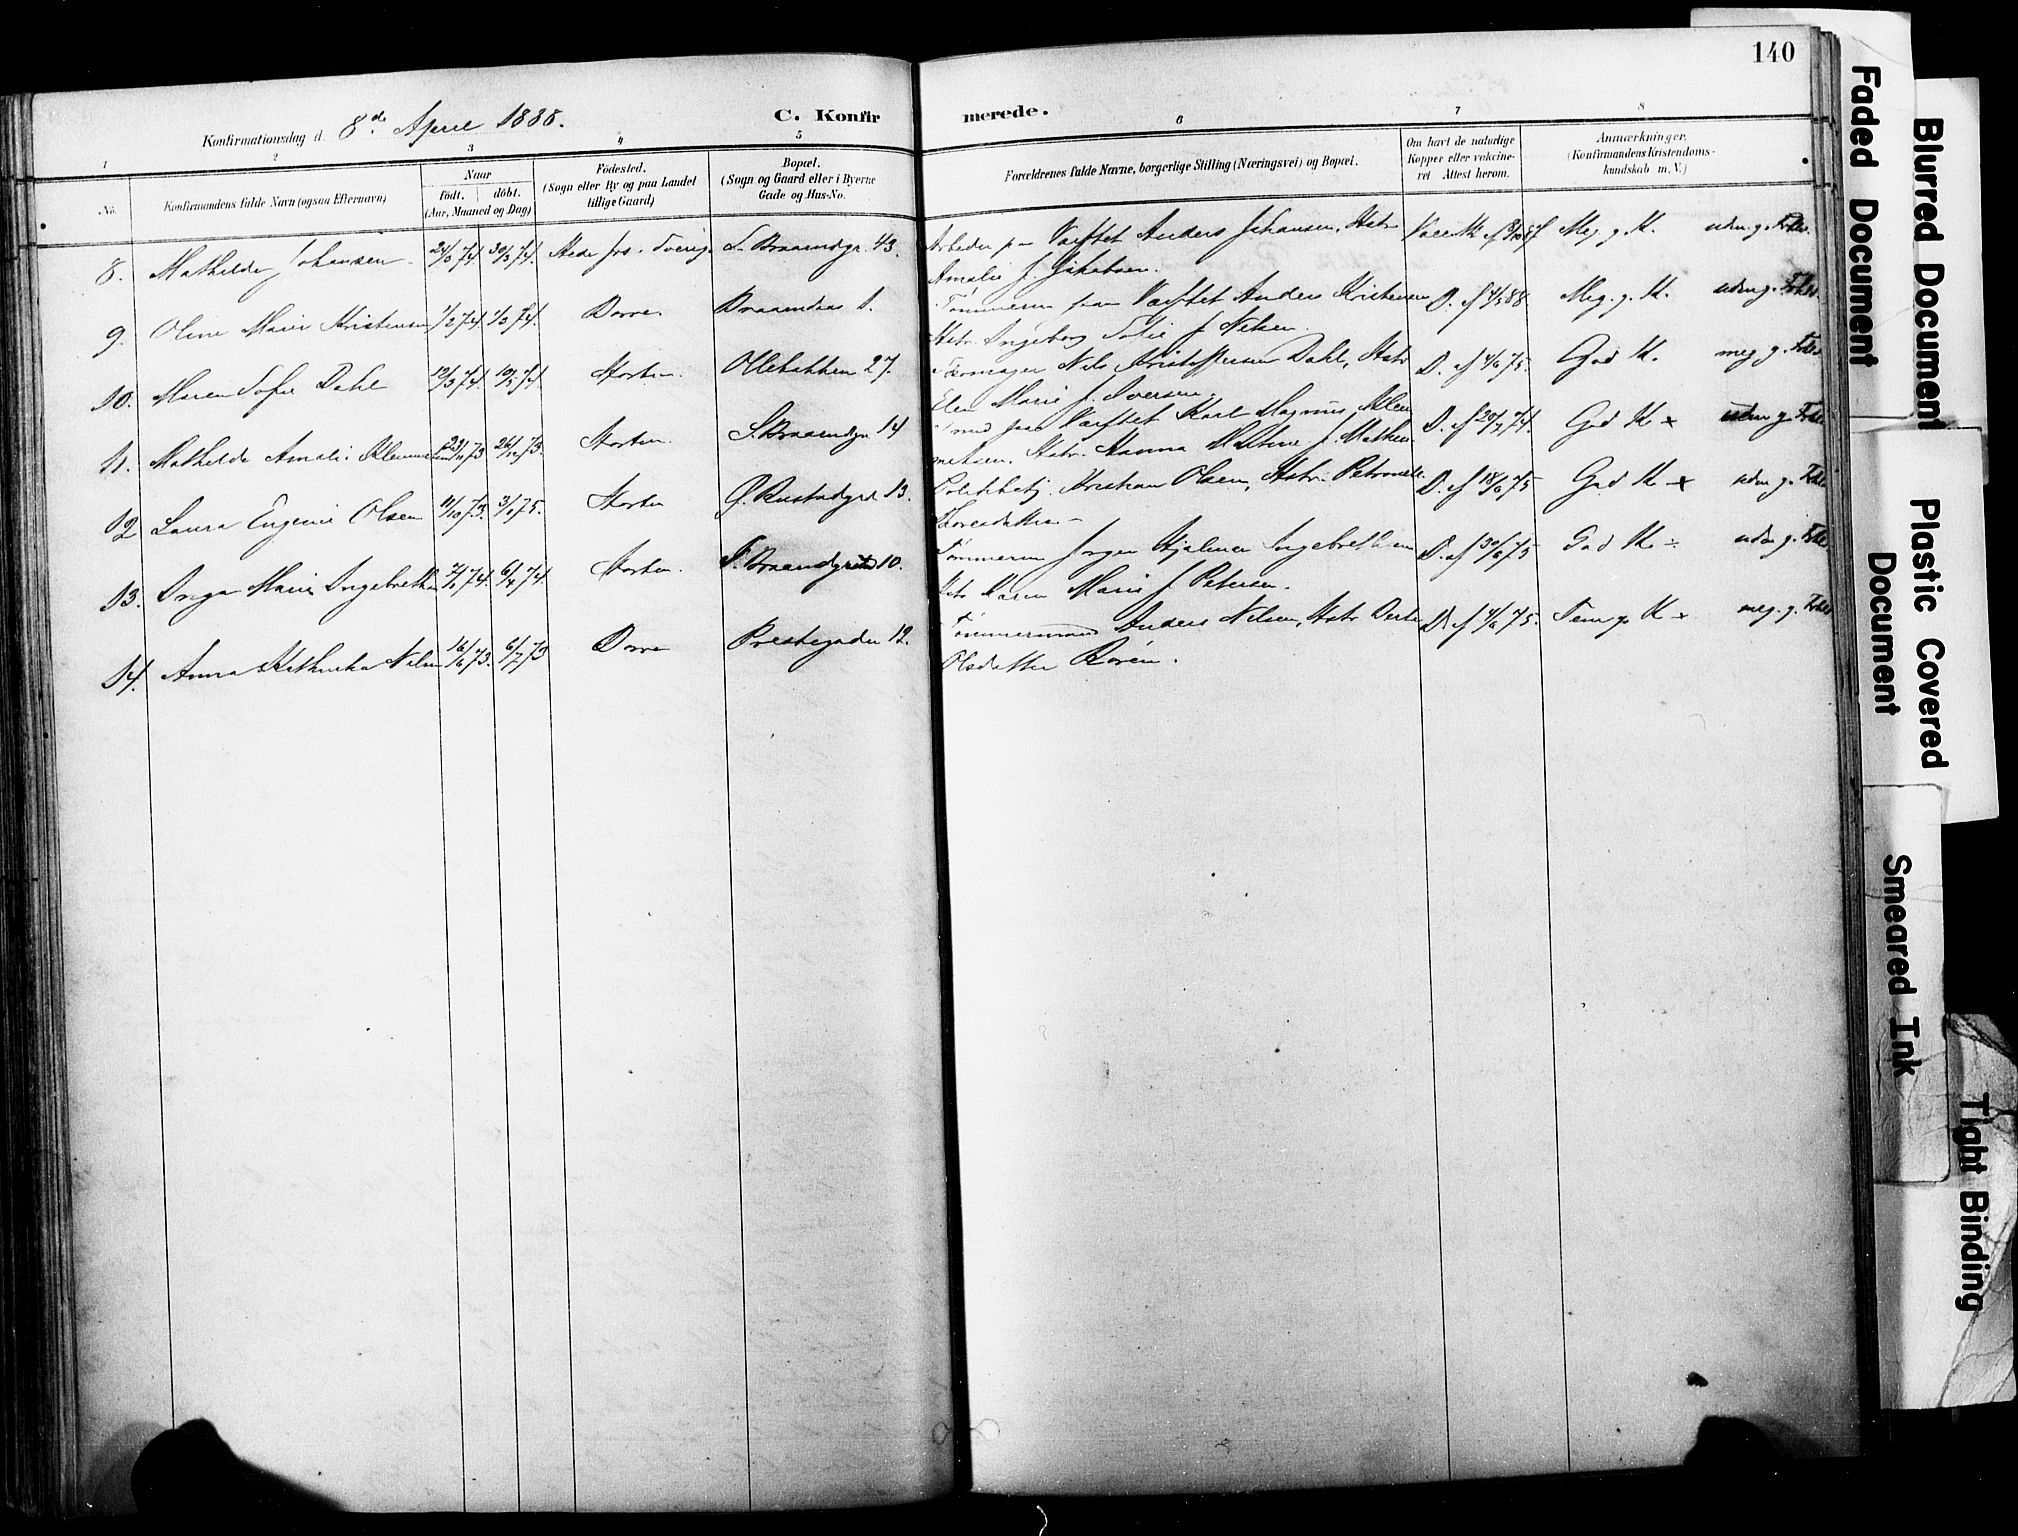 140
Konfirmationsdag d. 8de April 1888.
C. Konfirmerede.
1 2 3 4 5 6 7 8
No.
Konfirmandens fulde Navn (ogsaa Efternavn)
Naar
født. døbt.
(Aar, Maaned og Dag)
Fødested.
(Sogn eller By og paa Landet
tillige Gaard)
Bopæl.
(Sogn og Gaard eller i Byerne
Gade og Hus-No.
Forældrenes fulde Navne, borgerlige Stilling (Næringsvei) og Bopæl.
Om havt de naturlige
Kopper eller vakcine-
ret Attest herom.
Anmærkninger.
(Konfirmandens Kristendoms-
kundskab m. V.)
8. Mathilde Johansen 24/3 74. 30/3 74. S. Braarudgr. 43. Arbeder p Værftet Anders Johansen, Hstr Meg. g. K. udm. g. Fhl.
Amalie f. Jakobsen.
9. Oline Marie Kristensen 1/2 74. 1/3 74. Borre Braarudaa 1. Tømmerm paa Værftet Anders Kristensen D. af 88. Meg. g. K. udm g.
Hstr. Ingeborg Sofie f. Nelsen.
10. Maren Sofie Dahl 12/3 74. 10/5 74. Horten. Ollebakken 27. Nils Kristoffersen Dahl, Hstr D. af 4/6 75. God K. meg. g.
Elen Marie f. Iversen.
11. Mathilde Amalie Klemmetsen 23/11 73 26/12 73. Horten. S. Braarudgr 14 paa Værftet Karl Magnus Klem D. af 20/7 74. God K × udm g.
metsen. Hstr. Hanna Mathea f. Mathi
12 Laura Eugenie Olsen 11/10 73. 3/1 75. Horten G. Rustadgd. 13. Politibetj. Kristian Olsen, Hstr. Petronelle D. af 18/6 75 God K × udm g.
Thoresdatter
13. Inga Marie Ingebrethsen 74. 6/4 74. Horten. S. Braarudgrd 10. Tømmerm Jørgen Hjalmar Ingebrethsen D. af 30/6 75 God K ÷ udm g.
Hstr Karen Marie f. Petersen.
14. Anna Kathinka Nelsen 16/6 73. 6/7 73 Borre Prestegaden 12. Tømmermand Anders Nelsen, Hstr Berte D. af 4/6 75. Tem. g. K × meg. g.
Olsdatter Roren.
Faded Document
Blurred Document
Plastic Covered
Document
Smeared Ink
Tight Binding